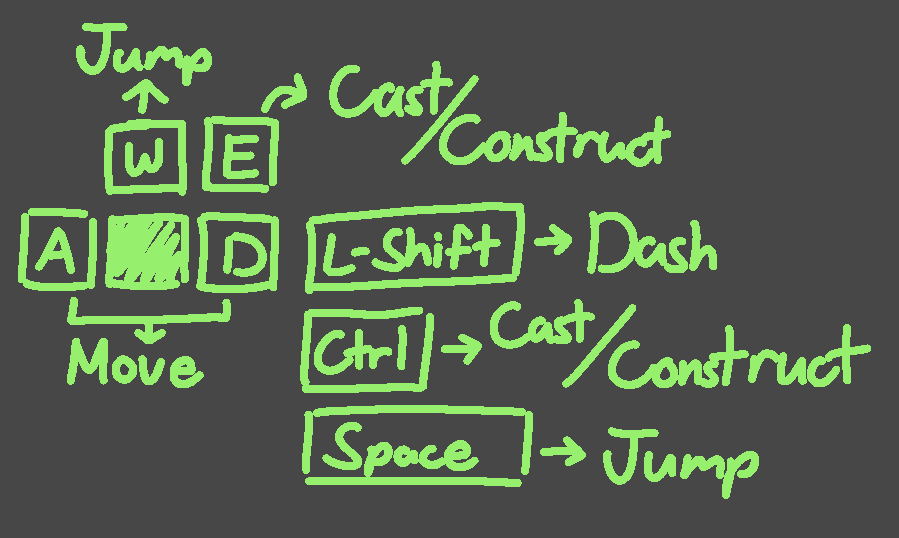 Jump
Cast/Construct
W E
A D L-Shift → Dash
Ctrl → Cast/Construct
Move
Space → Jump